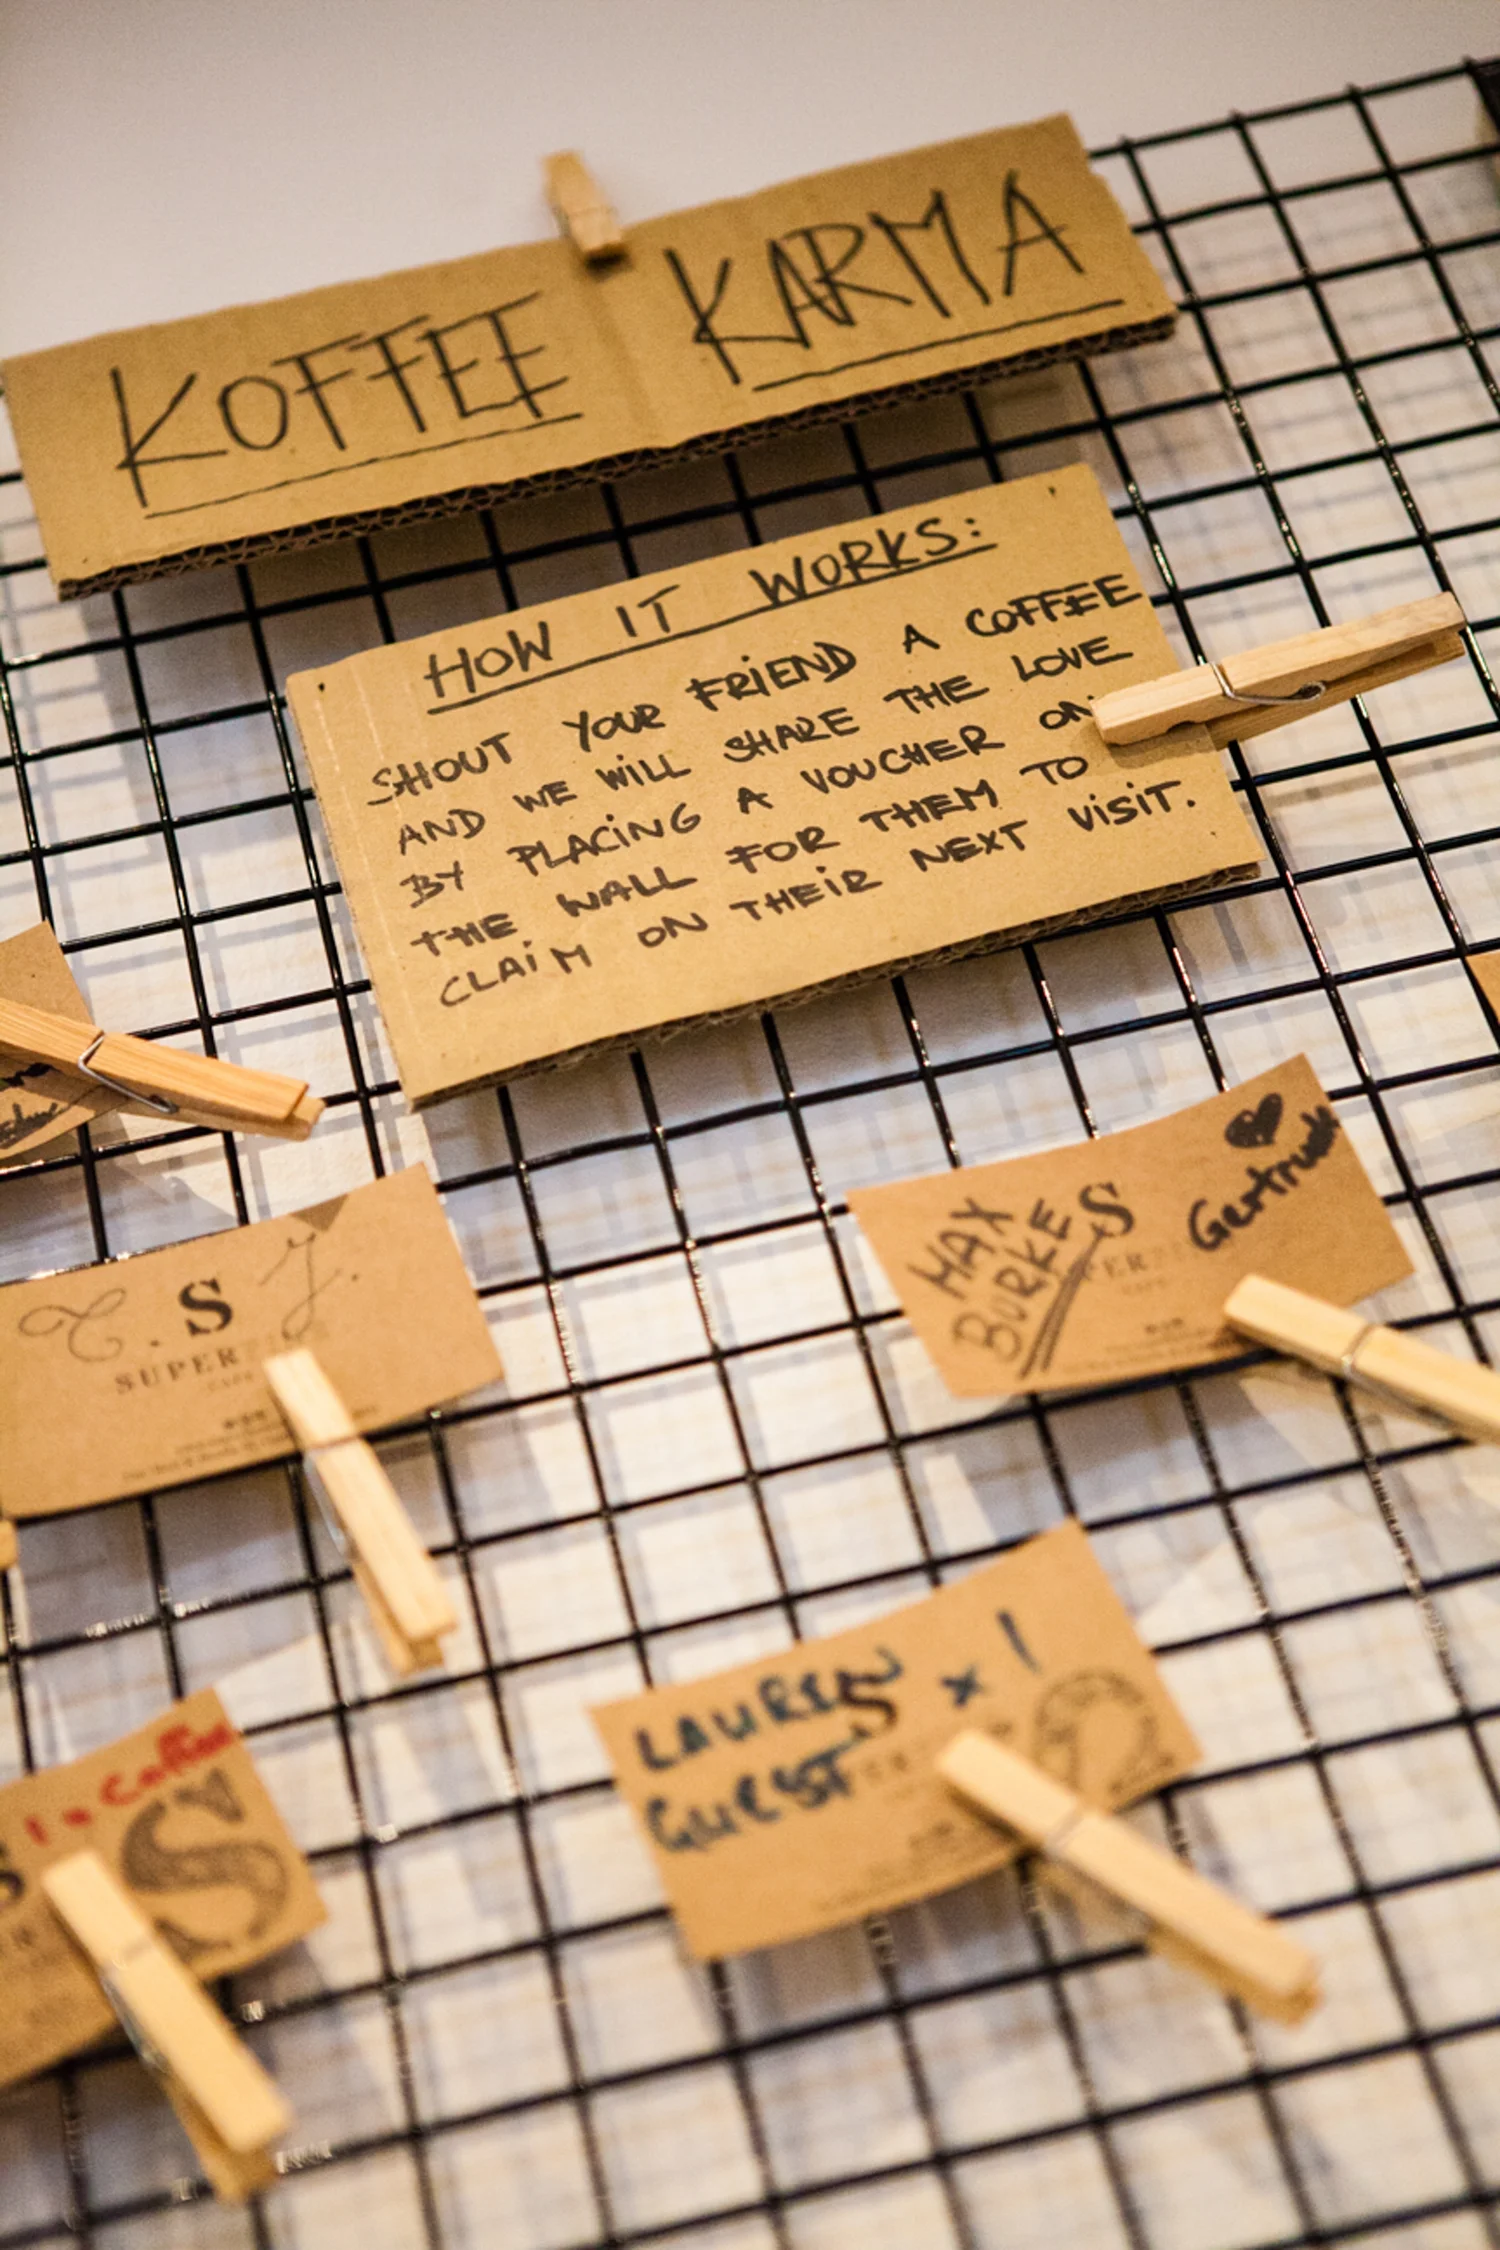 KOFFEE KARMA
HOW IT WORKS:
SHOUT YOUR FRIEND A COFFEE
AND WE WILL SHARE THE LOVE
BY PLACING A VOUCHER ON
THE WALL FOR THEM TO
CLAIM ON THEIR NEXT VISIT.
MAX
BURKE
S
Gertrude
C. S J.
SUPER
LAUREN x 1
GUEST
S
1 x Coffee
S